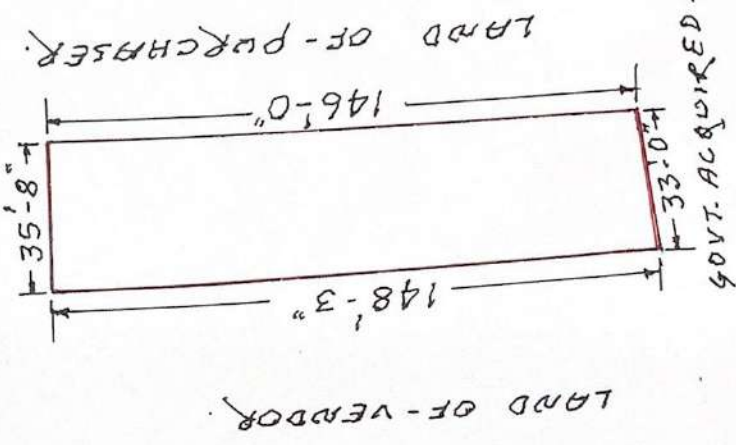 LAND OF - PURCHASER.
146'-0"
35'-8"
33'-0"
GOVT. ACQUIRED.
148'-3"
LAND OF - VENDOR.